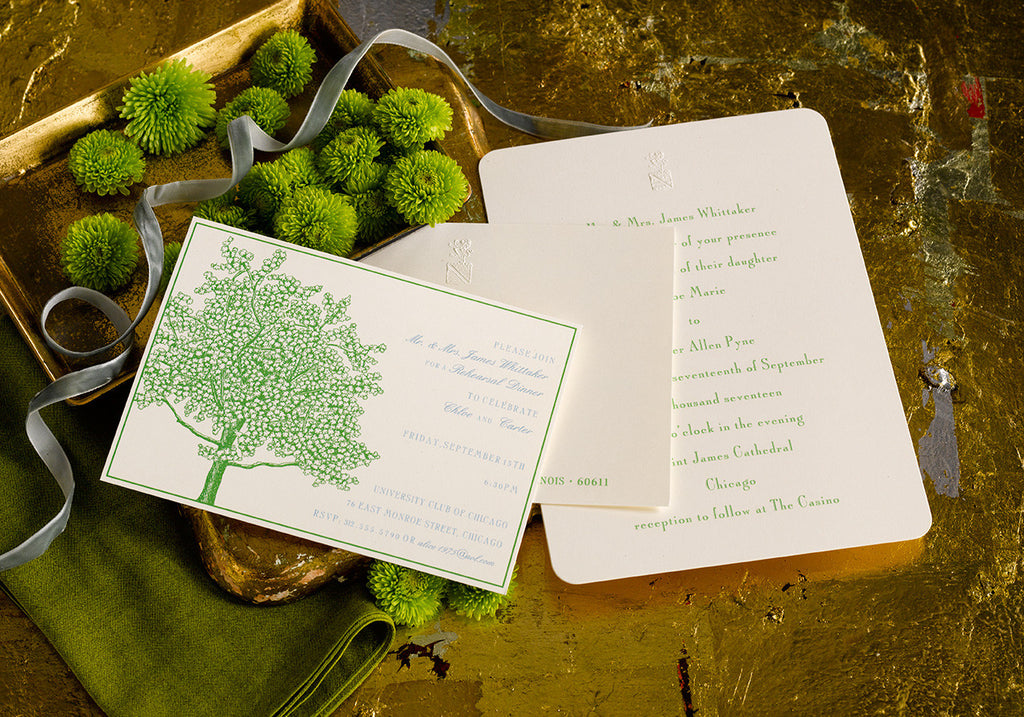 PLEASE JOIN
Mr. & Mrs. James Whittaker
FOR A Rehearsal Dinner
TO CELEBRATE
Chloe AND Carter
FRIDAY, SEPTEMBER 15TH
6:30PM
UNIVERSITY CLUB OF CHICAGO
76 EAST MONROE STREET, CHICAGO
RSVP: 312.555.5790 OR alice1975@aol.com
NOIS • 60611
& Mrs. James Whittaker
of your presence
of their daughter
oe Marie
to
er Allen Pyne
seventeenth of September
housand seventeen
o'clock in the evening
int James Cathedral
Chicago
reception to follow at The Casino